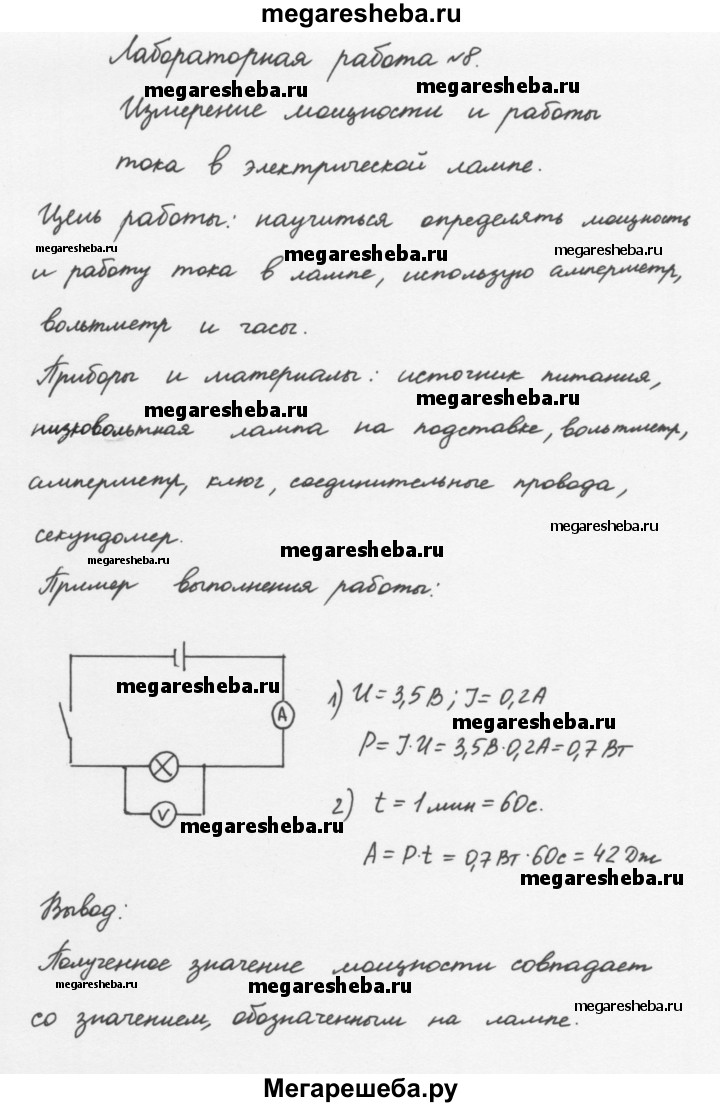 megaresheba.ru
Лабораторная работа №8.
megaresheba.ru
megaresheba.ru
Измерение мощности и работы
megaresheba.ru
тока в электрической лампе.
Цель работы: научиться определять мощность
megaresheba.ru
megaresheba.ru
megaresheba.ru
и работу тока в лампе, использую амперметр,
вольтметр и часы.
Приборы и материалы: источник питания,
megaresheba.ru
megaresheba.ru
низковольтная лампа на подставке, вольтметр,
амперметр, ключ, соединительные провода,
megaresheba.ru
секундомер.
megaresheba.ru
megaresheba.ru
Пример выполнения работы:
megaresheba.ru
A
V
1) U = 3,5 В; J = 0,2 А
megaresheba.ru
P = J·U = 3,5 В·0,2 А = 0,7 Вт
2) t = 1 мин = 60 с.
megaresheba.ru
A = P·t = 0,7 Вт·60 с = 42 Дж
megaresheba.ru
Вывод:
Полученное значение мощности совпадает
megaresheba.ru
megaresheba.ru
megaresheba.ru
со значением, обозначенным на лампе.
Мегарешеба.ру